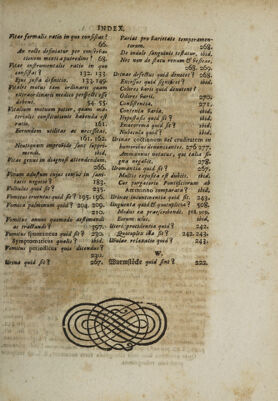 INDEX.
Vitae formalis ratio in quo consistat?
66.
An recte definiatur per concretum
cionem mentis putredine? 68.
Vitae instrumentalis ratio in quo
consistat? 132. 133.
Ejus justa definitio. 133. 149.
Vitales motus tam ordinarii quam
extraordinarii medico perspecti esse
debent. 54. 55.
Vitalium motuum pater, quam materialis constitutionis habenda est
ratio. 161.
Eorundem utilitas ac necessitas,
161. 162.
Neutiquam improbide sunt supprimendi. ibid.
Vitae genus in diagnosi attendendum.
266.
Vitium adustum cujus census in sanitatis negotio? 183.
Volvulus quid sit? 235.
Vomitus cruentus quid sit? 195. 196.
Vomica pulmonum quid? 204. 209.
210.
Vomitus annuus quomodo aestimandus
ac tractandus? 397.
Vomitus spumescens quid sit? 230.
Symptomaticus qualis? ibid.
Vomitus periodicus quis dicendus?
230.
Urina quid sit? 267.
Variat pro varietate temperamentorum. 268.
De indole sanguinis testatur. ibid.
Nec non de statu renum & vesicae.
268. 269.
Urinae defectus quid denotet? 268.
Excessus quid significet? ibid.
Colores varii quid denotent?
Odores varii. 270.
Consistentia, 271.
Contenta varia. ibid.
Hypostasis quid sit? ibid.
Enaeorema quid sit? ibid.
Nubecula quid? ibid.
Urinae coctionem vel cruditatem in
humoribus denunciantes. 276. 277.
Ammannus notatur, qui talia signa negabit. 278.
Uromantia quid sit? 267.
Multis exposita est dubiis. ibid.
Cur purgatorio Pontificiorum ab
Ammanno comparata? ibid.
Urinae incontinentia quid sit. 243.
Unguenta quid & quotuplicia? 308.
Modus ea praescribendi. 308. 309.
Eorum usus. ibid.
Uteri procidentia quid? 242.
Quotuplex illa sit? 242. 243.
Uvulae relaxatio quid? 243.
W.
Wurmstöcke quid sint? 222.